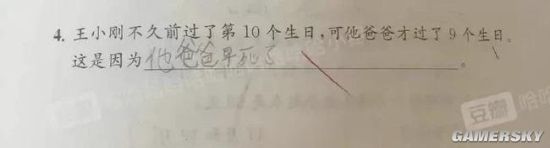 4. 王小刚不久前过了第10个生日,可他爸爸才过了9个生日。
这是因为他爸爸早死了。
豆瓣
GAMERSKY